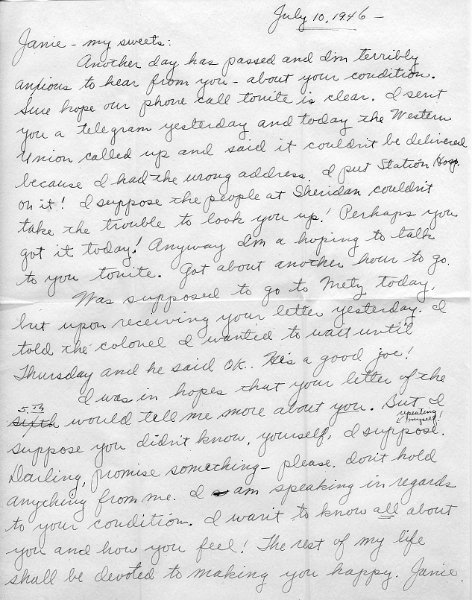 July 10, 1946 –
Janie – my sweets:
Another day has passed and I'm terribly
anxious to hear from you – about your condition.
Sure hope our phone call tonite is clear. I sent
you a telegram yesterday and today the Western
Union called up and said it couldn't be delivered
because I had the wrong address. I put Station Hosp.
on it! I suppose the people at Sheridan couldn't
take the trouble to look you up! Perhaps you
got it today! Anyway I'm a hoping to talk
to you tonite. Got about another hour to go.
Was supposed to go to Metz today,
but upon receiving your letter yesterday, I
told the colonel I wanted to wait until
Thursday and he said OK. He's a good joe!
I was in hopes that your letter of the
5th
sixth would tell me more about you. But I
repeating
myself!
suppose you didn't know, yourself, I suppose.
Darling, promise something – please. don't hold
anything from me. I am speaking in regards
to your condition. I want to know all about
you and how you feel! The rest of my life
shall be devoted to making you happy. Janie